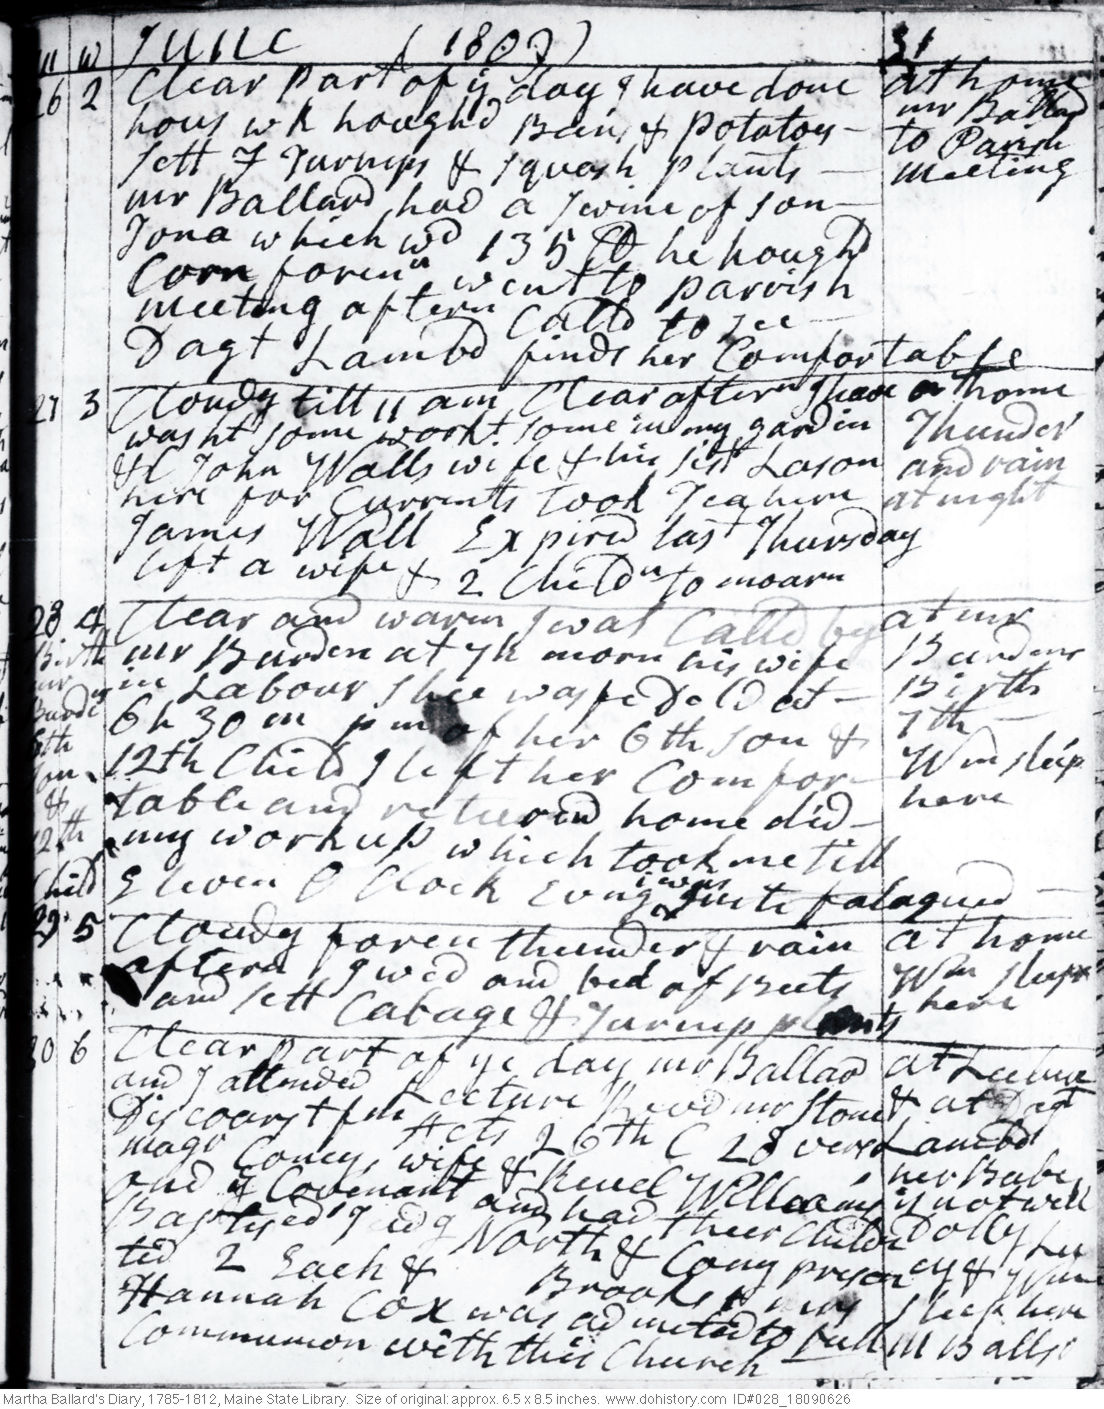 m w June (1809) 31
26 2 Clear Part of ye day I have done at home
hous wk houghd Beins & potatoes mr Ballad
sett 7 Turnips & squash plants to Parish
mr Ballard had a swine of son meeting
Jona which wd 135 lb he hough'd
Corn foren went to parrish
meeting aftern Calld to see
Dagt Lambd finds her Comfortable
27 3 Cloudy till 11 am Clear aftern I have at home
washt some workt some in my gardin Thunder
John Walls wife & his sist Lason and rain
here for Currents Took Tea here at night
James Wall Expired last Thursday
left a wife & 2 Childn To moarn
28 4 Clear and warm I was Calld by at mr
Birth mr Burden at 7h morn his wife Burdens
mr in Labour Shee was safe dd at Birth
Burdn 6h 30m pm of her 6th son & 7th
6th 12th Child I left her Comfor Wm sleep
son table and returnd home did here
& my work up which took me till
12th Eleven O Clock Evng i was quite fatagued
Child
29 5 Cloudy foren thunder & rain at home
aftern I wed and bed of Beets Wm slept
and sett Cabage & Turnip plants here
30 6 Clear part of ye day mr Ballad at Lecture
and I attended Lecture Revd mr Stone & at Dagt
Discoarst fm Acts 26th C 28 verse Lambd
magr Coney, wife & Reuel Williams her Babe
ond ye Covenant and had their Childn is not well
Baptised Judg North & Cony presen Dolly Lu
ted 2 Each & Brooks mrs cy & Wm
Hannah Cox was admited to full sleep here
Communion with this Church m Balls
Martha Ballard's Diary, 1785-1812, Maine State Library. Size of original: approx. 6.5 x 8.5 inches. www.dohistory.com ID#028_18090626